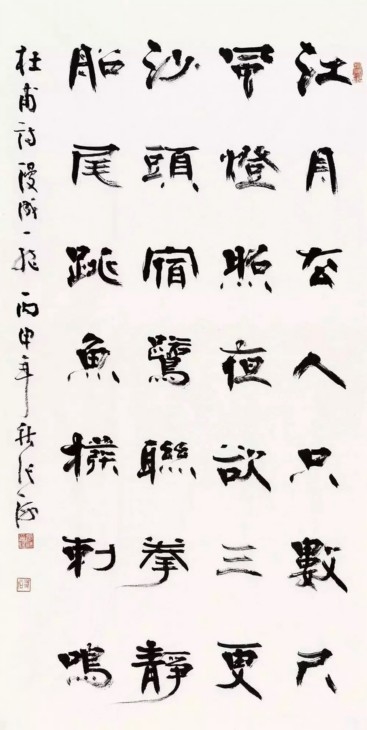 江月去人只數尺
風燈照夜欲三更
沙頭宿鷺聯拳靜
船尾跳魚撥刺鳴
杜甫詩漫成一絕 丙申年秋張海